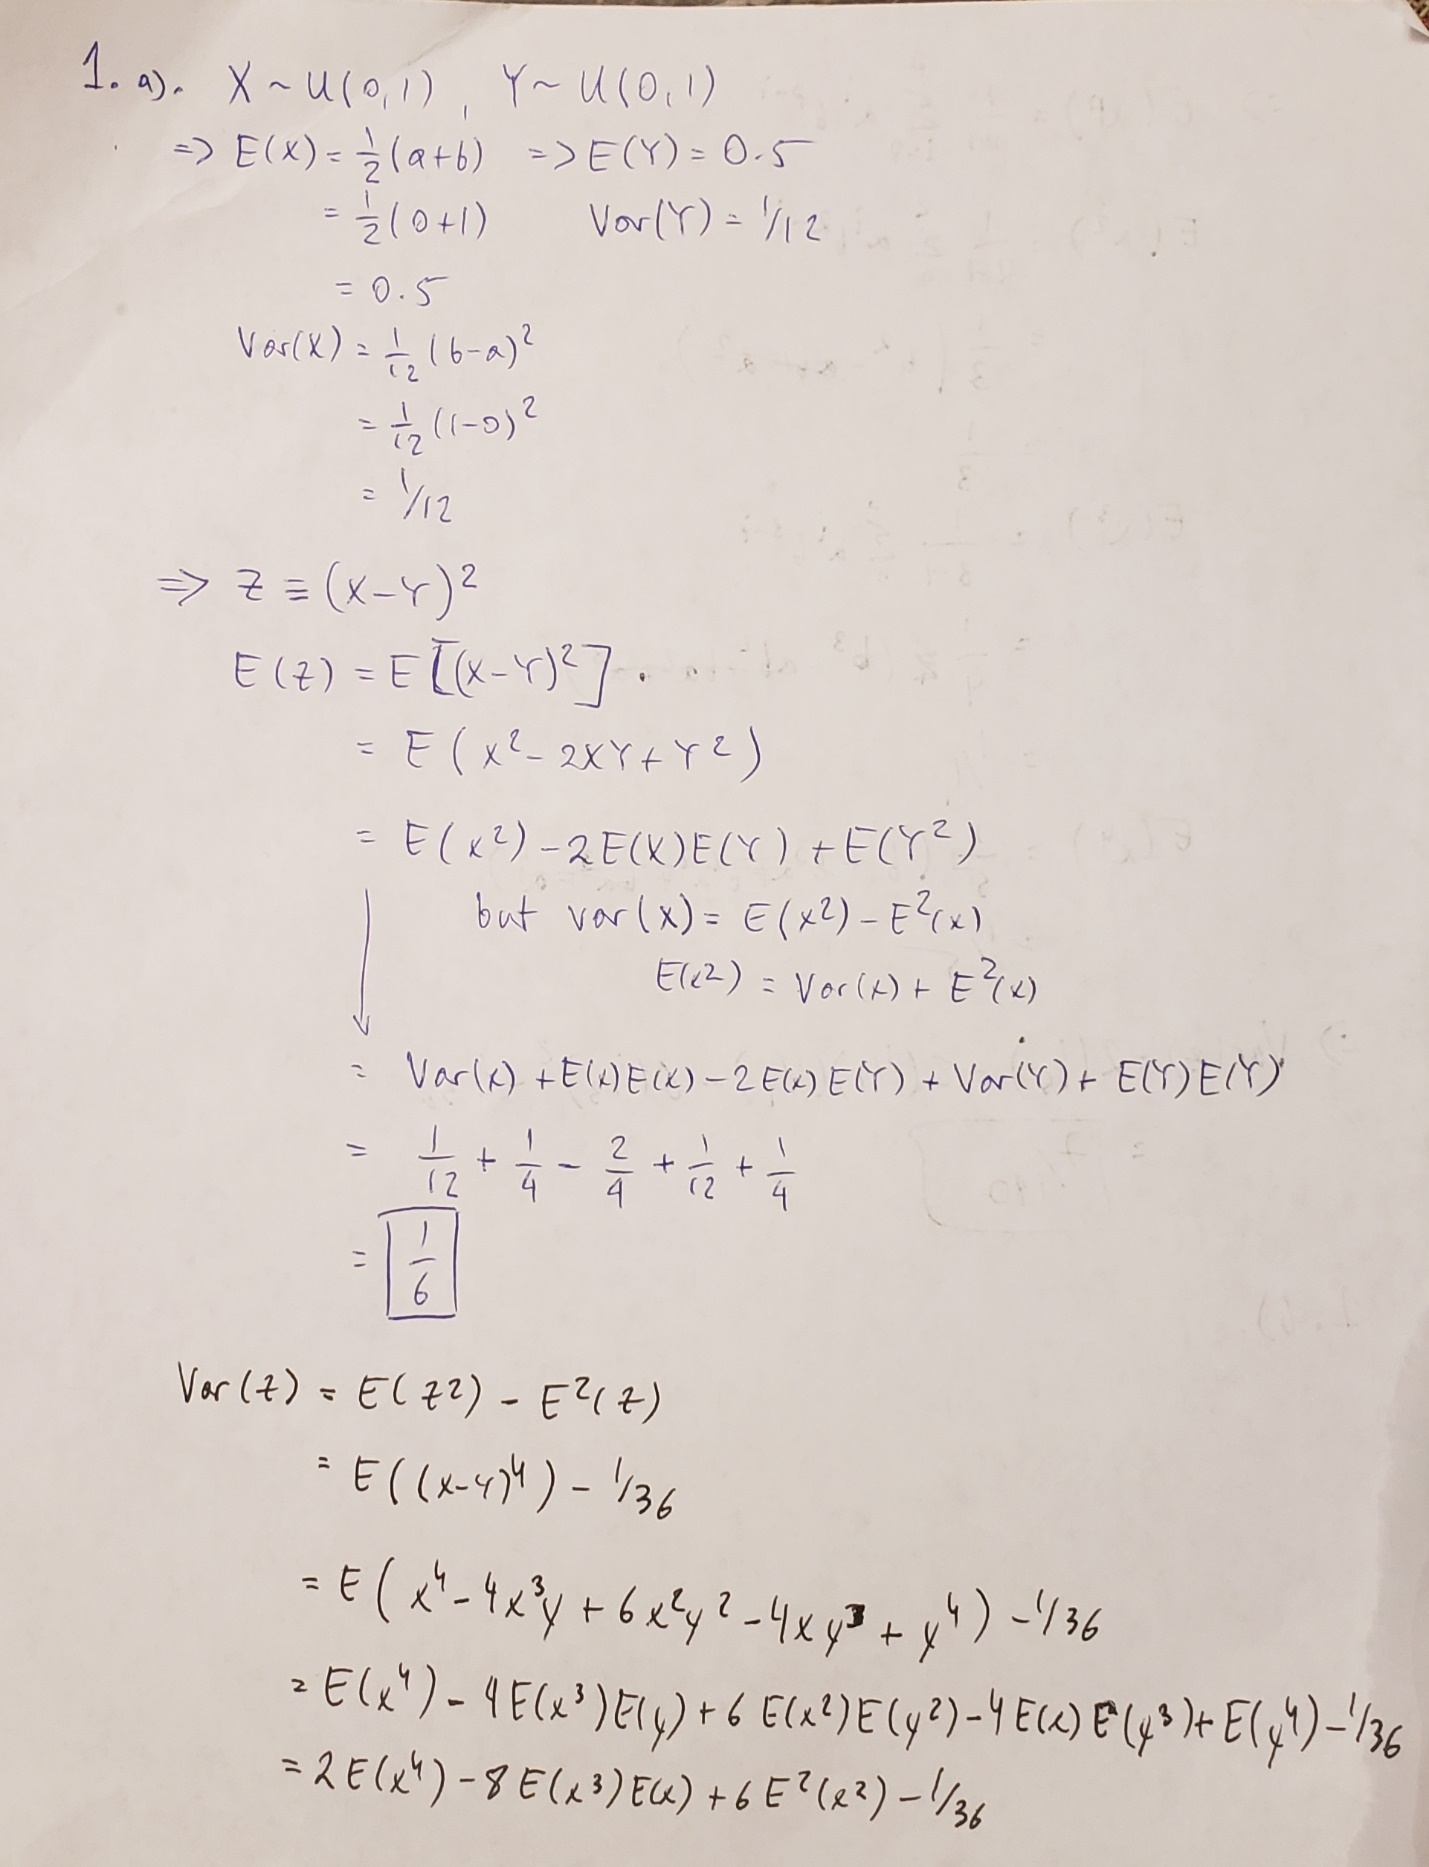 1. a). X ~ U(0,1), Y ~ U(0,1)
=> E(X) = 1/2 (a+b) => E(Y) = 0.5
= 1/2 (0+1) Var(Y) = 1/12
= 0.5
Var(X) = 1/12 (b-a)²
= 1/12 (1-0)²
= 1/12
=> Z ≡ (X-Y)²
E(Z) = E[(X-Y)²].
= E(X² - 2XY + Y²)
= E(X²) - 2E(X)E(Y) + E(Y²)
but var(x) = E(x²) - E²(x)
E(x²) = Var(x) + E²(x)
= Var(x) + E(x)E(x) - 2E(x)E(Y) + Var(Y) + E(Y)E(Y)
= 1/12 + 1/4 - 2/4 + 1/12 + 1/4
= 1/6
Var(Z) = E(Z²) - E²(Z)
= E((x-y)⁴) - 1/36
= E(x⁴ - 4x³y + 6x²y² - 4xy³ + y⁴) - 1/36
= E(x⁴) - 4E(x³)E(y) + 6E(x²)E(y²) - 4E(x)E(y³) + E(y⁴) - 1/36
= 2E(x⁴) - 8E(x³)E(x) + 6E²(x²) - 1/36